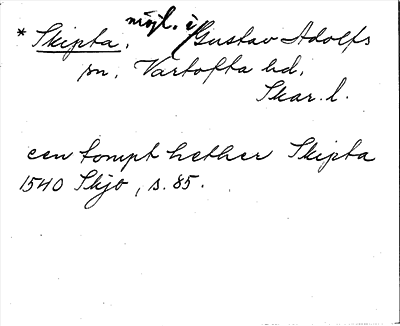 * Skipta, möjl. i Gustav Adolfs
sn, Vartofta hd,
Skar. l.
een tompt hether Skipta
1540 Skjo, s. 85.